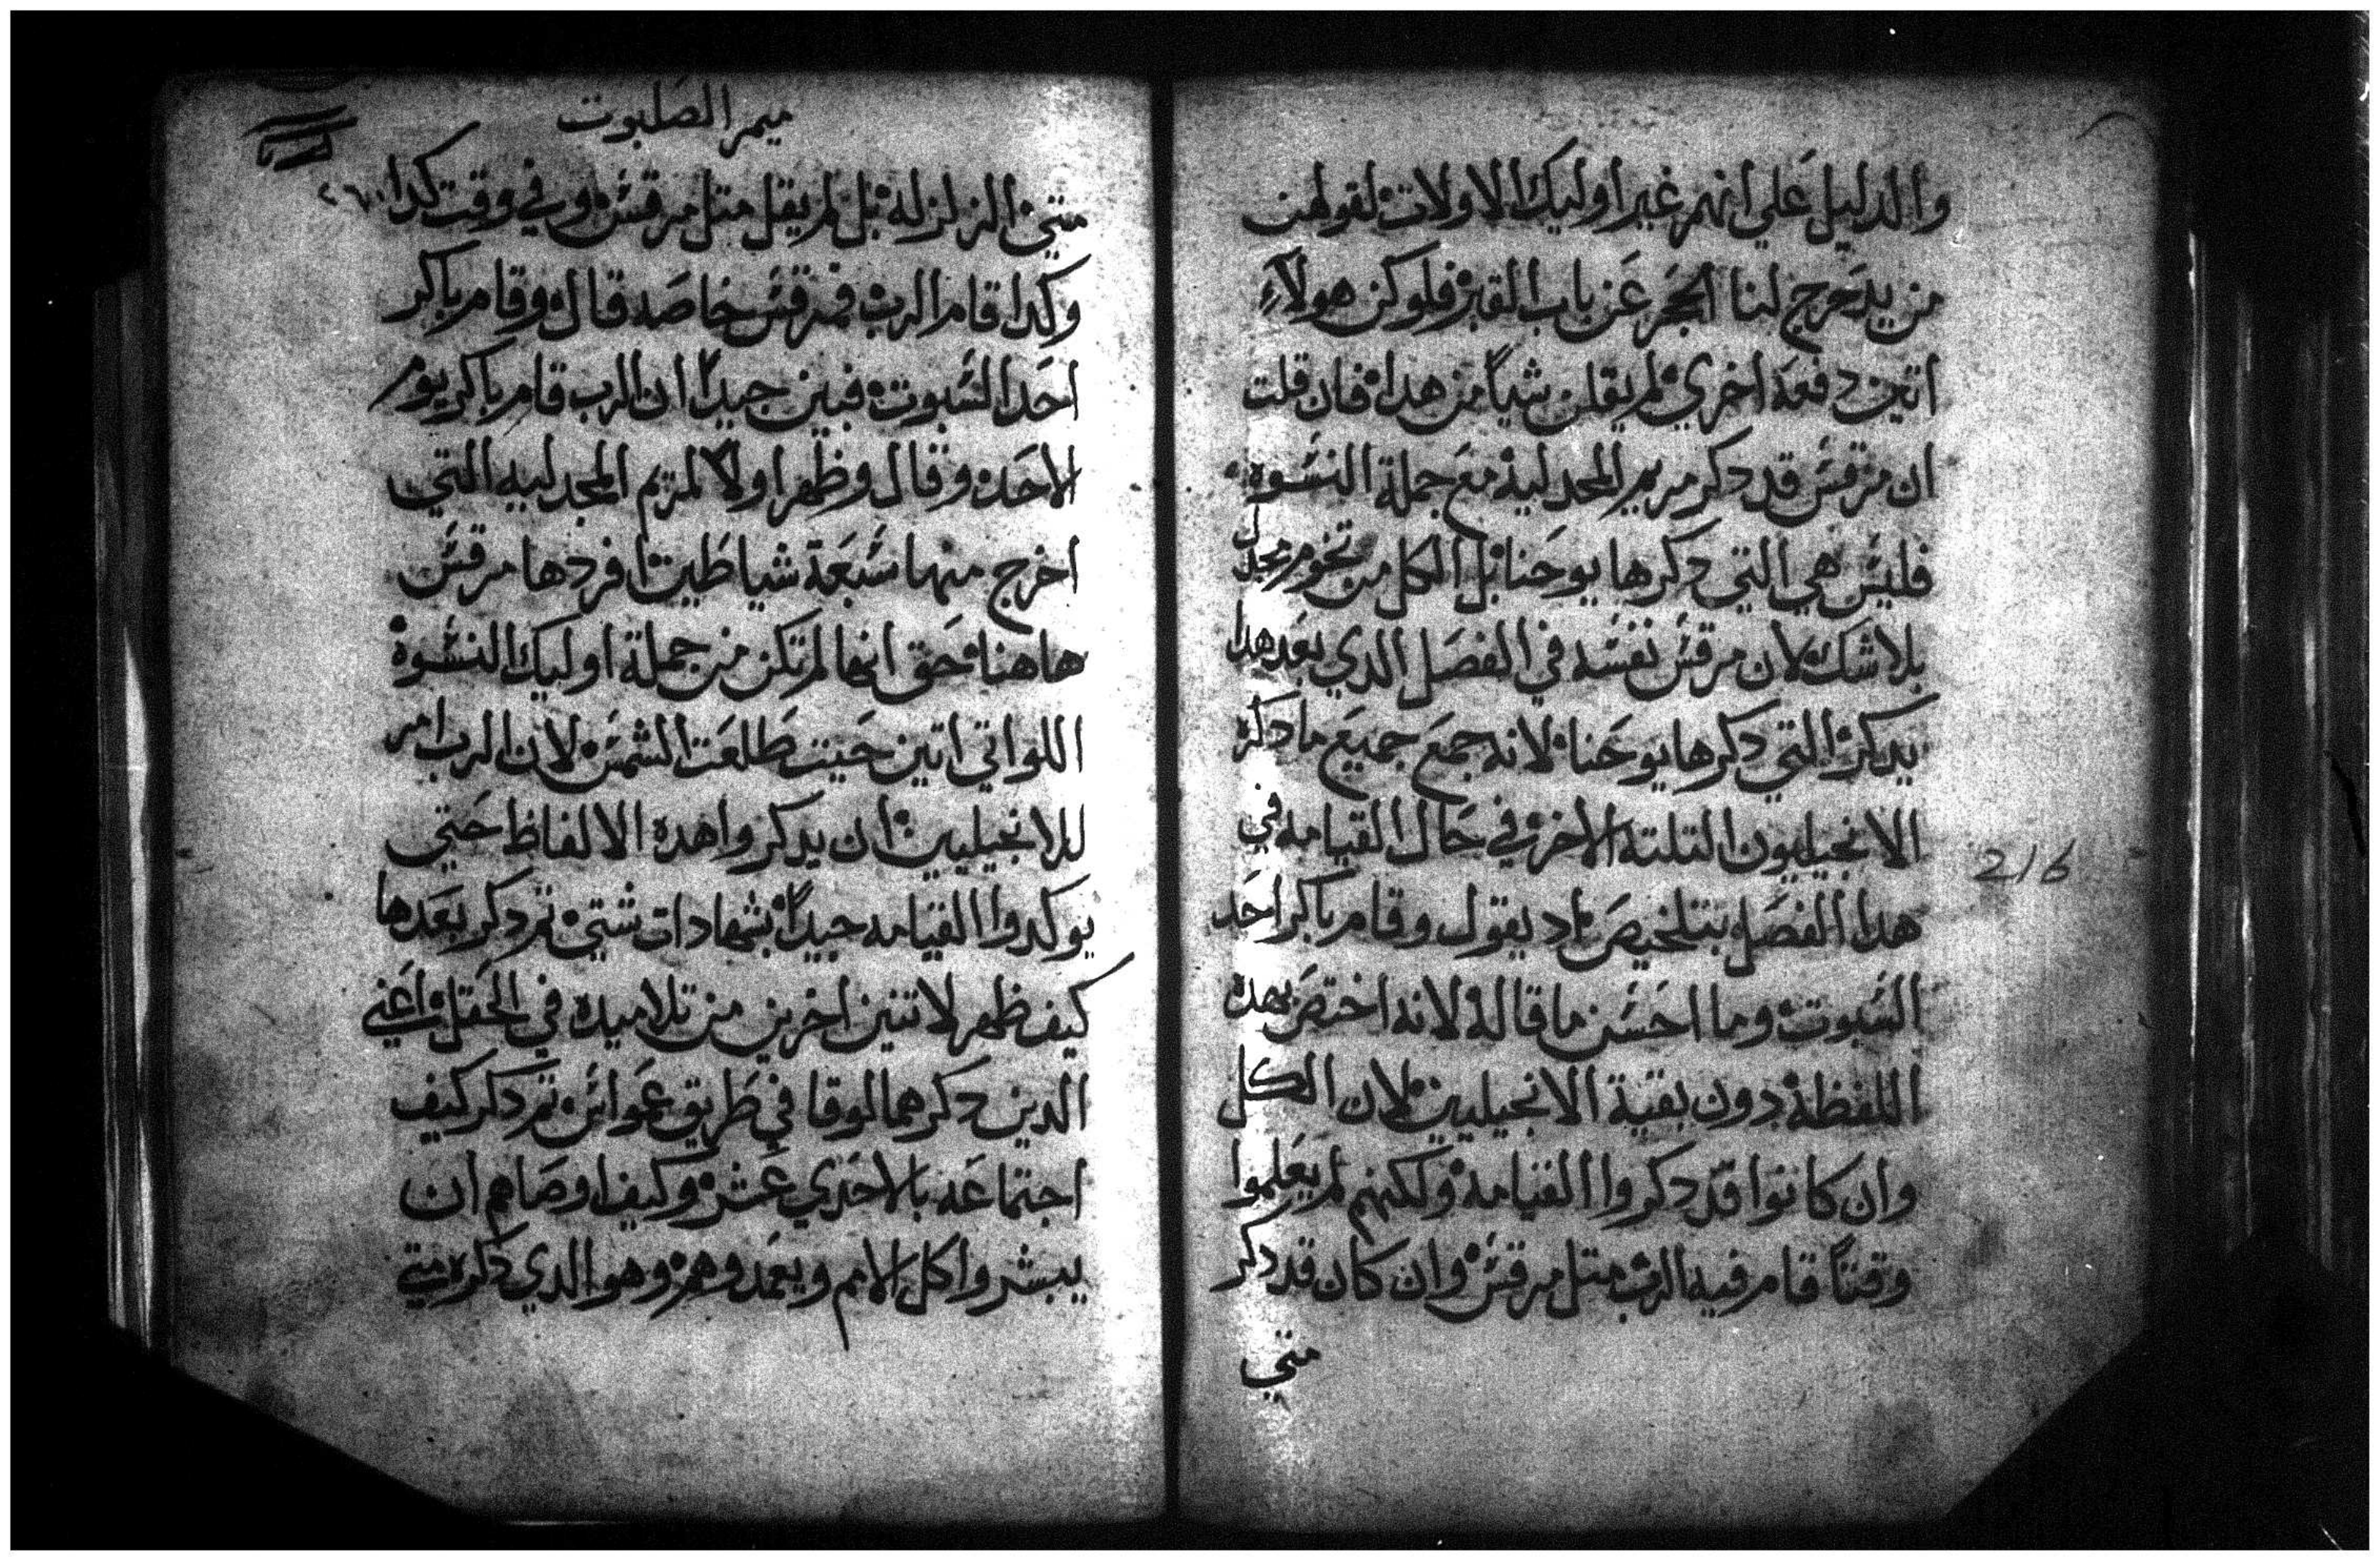 والدليل علي انهم غير اوليك الاولات لقولهن
من يدحرج لنا الحجر عن باب القبر فلوكن هولاء
اتين دفعه اخري لم يقلن شياً من هدا فان قلت
ان مرقس قد دكر مريم المجدلية مع جملة النسوه
فليس هي التي دكرها يوحنا بل الكل من تخوم مجدل
بلا شك لان مرقس نفسه في الفصل الدي بعد هدا
يدكر التي دكرها يوحنا لانه جمع جميع ما دكره
الانجيليون التلته الاخر في حال القيامه في
هدا الفصل بتلخيص اد يقول وقام باكر احد
السبوت وما احسن ما قاله لانه اختص بهده
اللفظة دون بقية الانجيليين لان الكل
وان كانوا قد دكروا القيامة ولكنهم لم يعلموا
وقتاً قام فيه الرب متل مرقس وان كان قد دكر
متي
216
ميمر الصلبوت
متي الزلزله بل لم يقل متل مرقس وفي وقت كدا
وكدا قام الرب فمرقس خاصه قال وقام باكر
احد السبوت فبين جيداً ان الرب قام باكر يوم
الاحد وقال وظهر اولاً لمريم المجدليه التي
اخرج منها سبعة شياطين افردها مرقس
هاهنا حق انها لم تكن من جملة اوليك النسوة
اللواتي اتين حيت طلعت الشمس لان الرب امر
للانجيليين ان يدكروا هده الالفاظ حتي
يوكدوا القيامه جيداً بشهادات شتي تم دكر بعدها
كيف ظهر لاتنين اخرين من تلاميده في الحقل اعني
الدين دكرهما لوقا في طريق عمواس تم دكر كيف
اجتماعه بالاحدي عشر وكيف اوصاهم ان
يبشروا كل الامم ويعمدوهم وهو الدي دكره متي